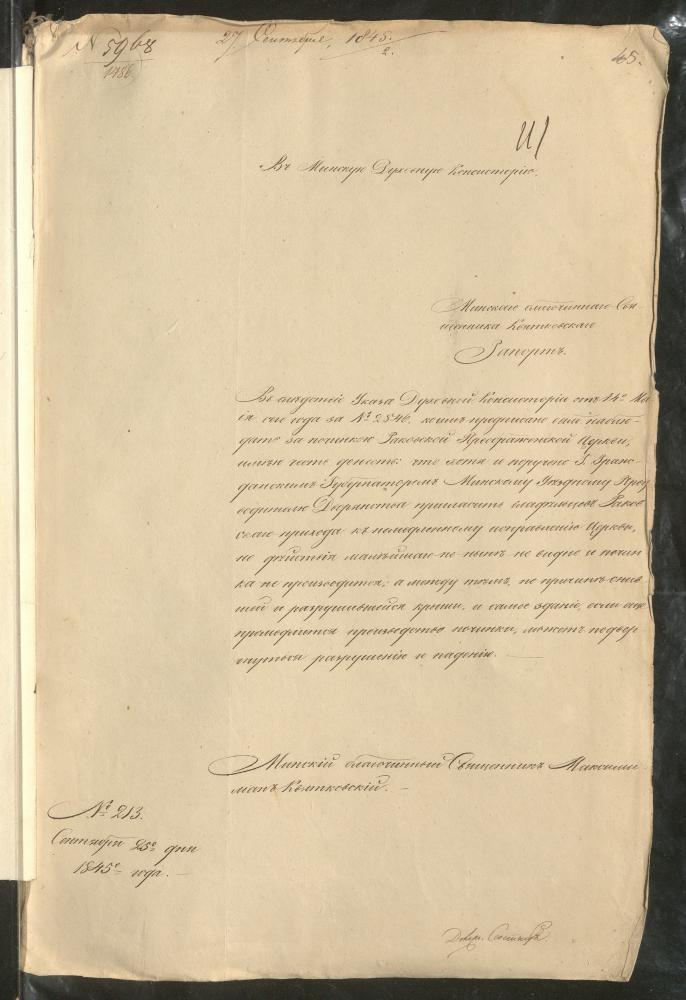 № 5968
1486
27 Сентября, 1845.
2.
45.
Въ Минскую Духовную Консисторію.
Минскаго благочиннаго Свя-
щенника Квятковскаго
Рапортъ.
Въ слѣдствіе Указа Духовной Консисторіи отъ 14го Ма-
ія сего года за № 2546, коимъ предписано мнѣ наблю-
дать за починкою Раковской Преображенской Церкви,
имѣю честь донесть: что хотя и поручено Г. Граж-
данскимъ Губернаторомъ Минскому Уѣздному Пред-
водителю Дворянства пригласить владѣльцевъ Раков-
скаго прихода къ немедленному исправленію Церкви,
но дѣйствія малѣйшаго по нынѣ не видно и почин-
ка не производится; а между тѣмъ, по причинѣ сгнив-
шей и разрушившейся крыши, и самое зданіе, если еще
промедлится производство починки, можетъ подвер-
гнуться разрушенію и паденію.
Минскій благочинный Священникъ Максими-
ліанъ Квятковскій.
№ 213.
Сентября 25го дня
1845го года.